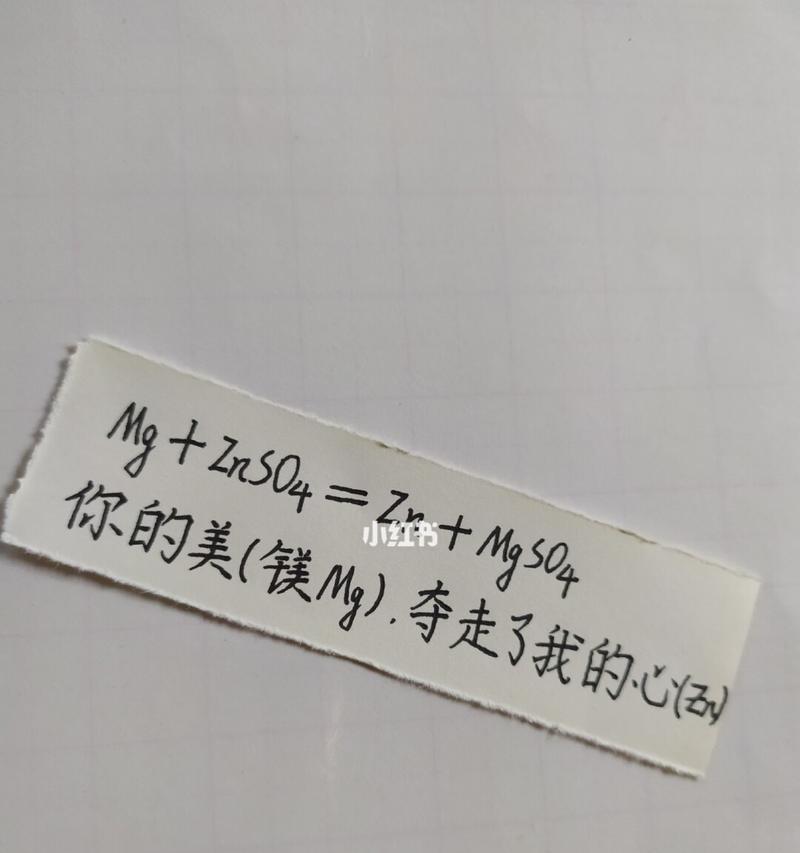 Mg+ZnSO₄=Zn+MgSO₄
小红书
你的美(镁Mg).夺走了我的心(Zn)